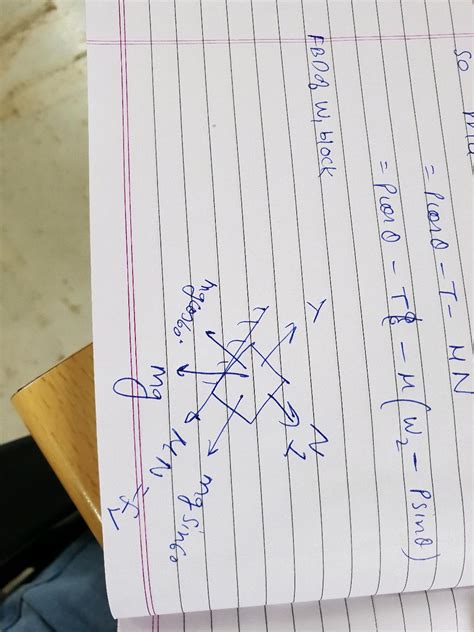 so
= Pcosθ - T - μN
= Pcosθ - T - μ(W₂ - Psinθ)
FBD of W₁ block
N
mgcos60°
mg
μN
mgsin60